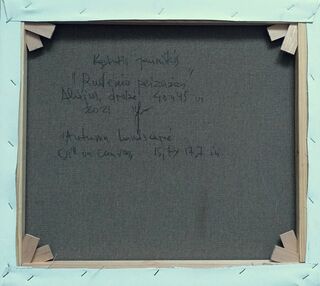 Kęstutis Jauniškis
"Rudenio peizažas"
Aliejus, drobė 40 x 45
2021
Autumn landscape
Oil on canvas 15,7 x 17,7 in